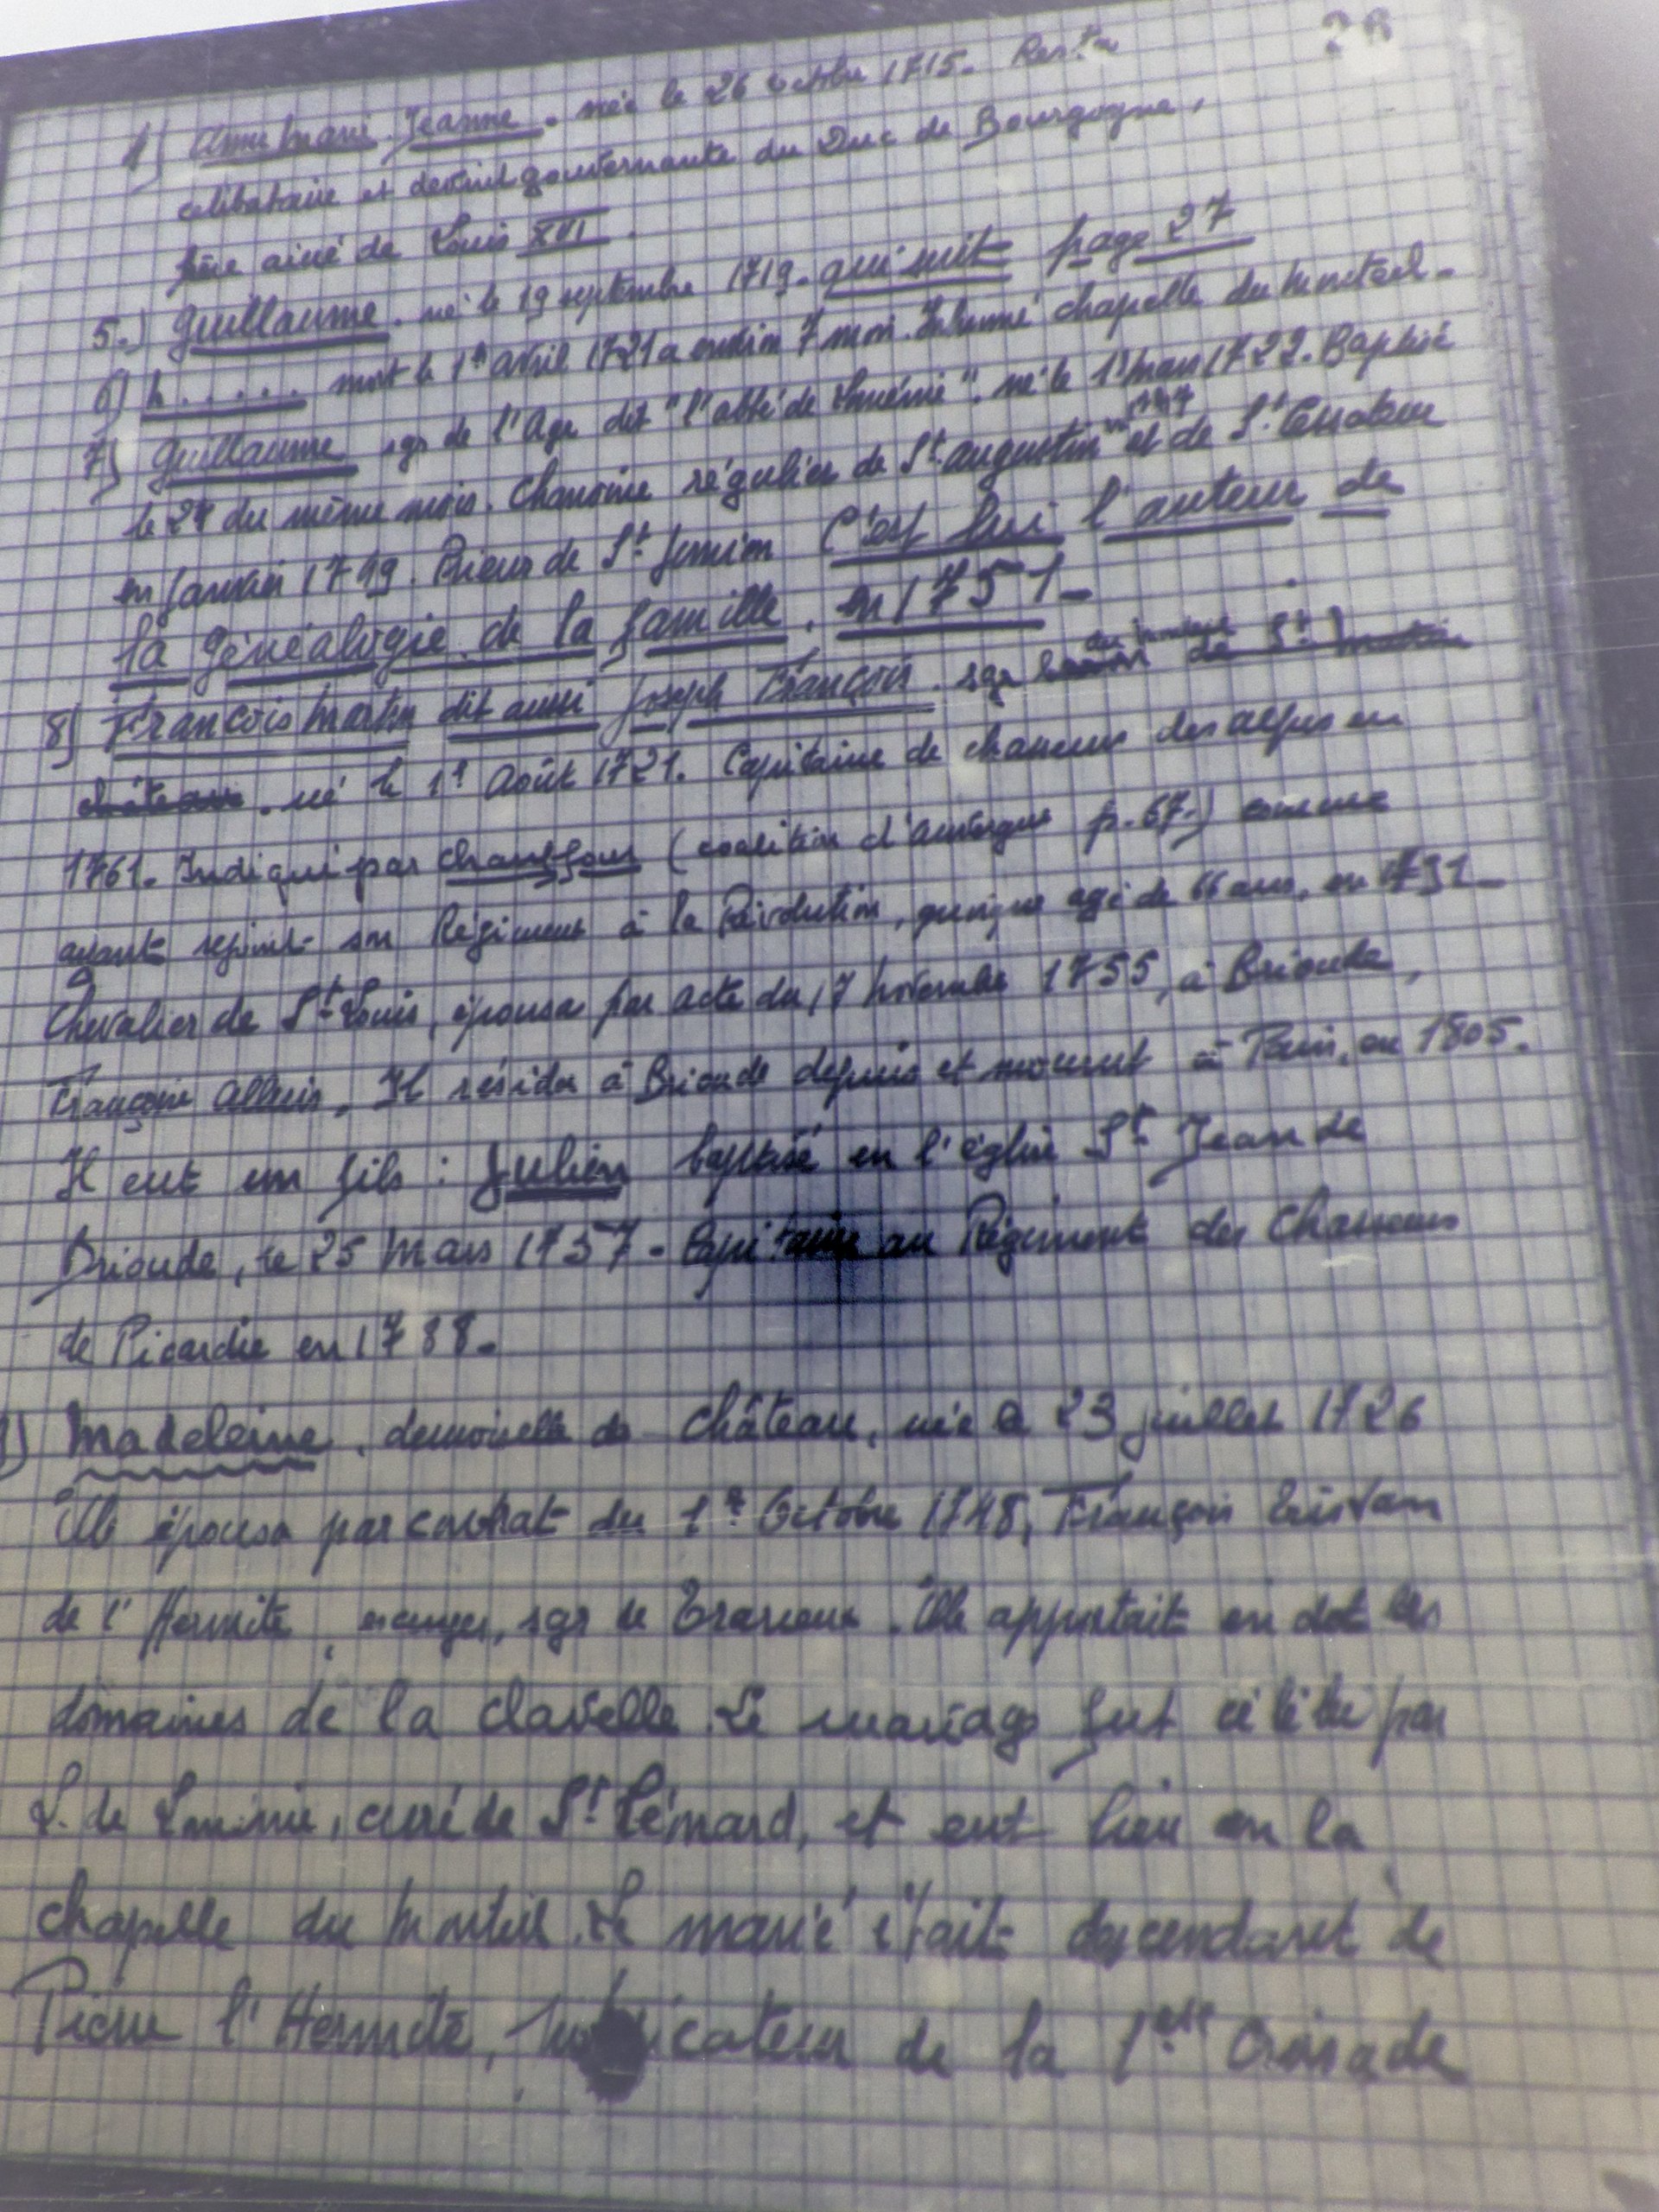 4) Anne Marie Jeanne. née le 26 octobre 1715. Resta
célibataire et devint gouvernante du Duc de Bourgogne,
frère ainé de Louis XVI.
5.) Guillaume. né le 19 septembre 1719. qui suit page 27
6) h..... mort le 1er avril 1721 a environ 7 mois. Inhumé chapelle du Monteil.
7) Guillaume sgr de l'Age dit "l'abbé de ". né le 1er mars 1722. Baptisé
le 24 du même mois. Chanoine régulier de St Augustin et de St
en Janvier 1749. Prieur de St Junien C'est lui l'auteur de
la Généalogie de la famille, en 1751-
8) François Martin dit aussi Joseph François. sgr de St
château. né le 1er Août 1721. Capitaine de chasseurs des alpes en
1761. Indiqué par Chauffour (coalition d'Auvergne p. 67.) comme
ayant rejoint son Régiment à la Révolution, quoique agé de 66 ans, en
Chevalier de St Louis, épousa par acte du 17 novembre 1755, à Brioude,
Françoise. Il résida à Brioude depuis et mourut à, en 1805.
Il eut un fils : Julien baptisé en l'église St Jean de
Brioude, le 25 Mars 1757 - Capitaine au Régiment des Chasseurs
de Picardie en 1788.
9) Madeleine, demoiselle de Château, née le 23 juillet 1726
Elle épousa par contrat du 1er Octobre 1748, François Tristan
de l'Hermite, sgr de. Elle apportait en dot les
domaines de la Clavelle. Le mariage fut célébré par
L. de, curé de St Lénard, et eut lieu en la
chapelle du Monteil. Le marié était descendant de
Pierre l'Hermite, de la 1ère Croisade